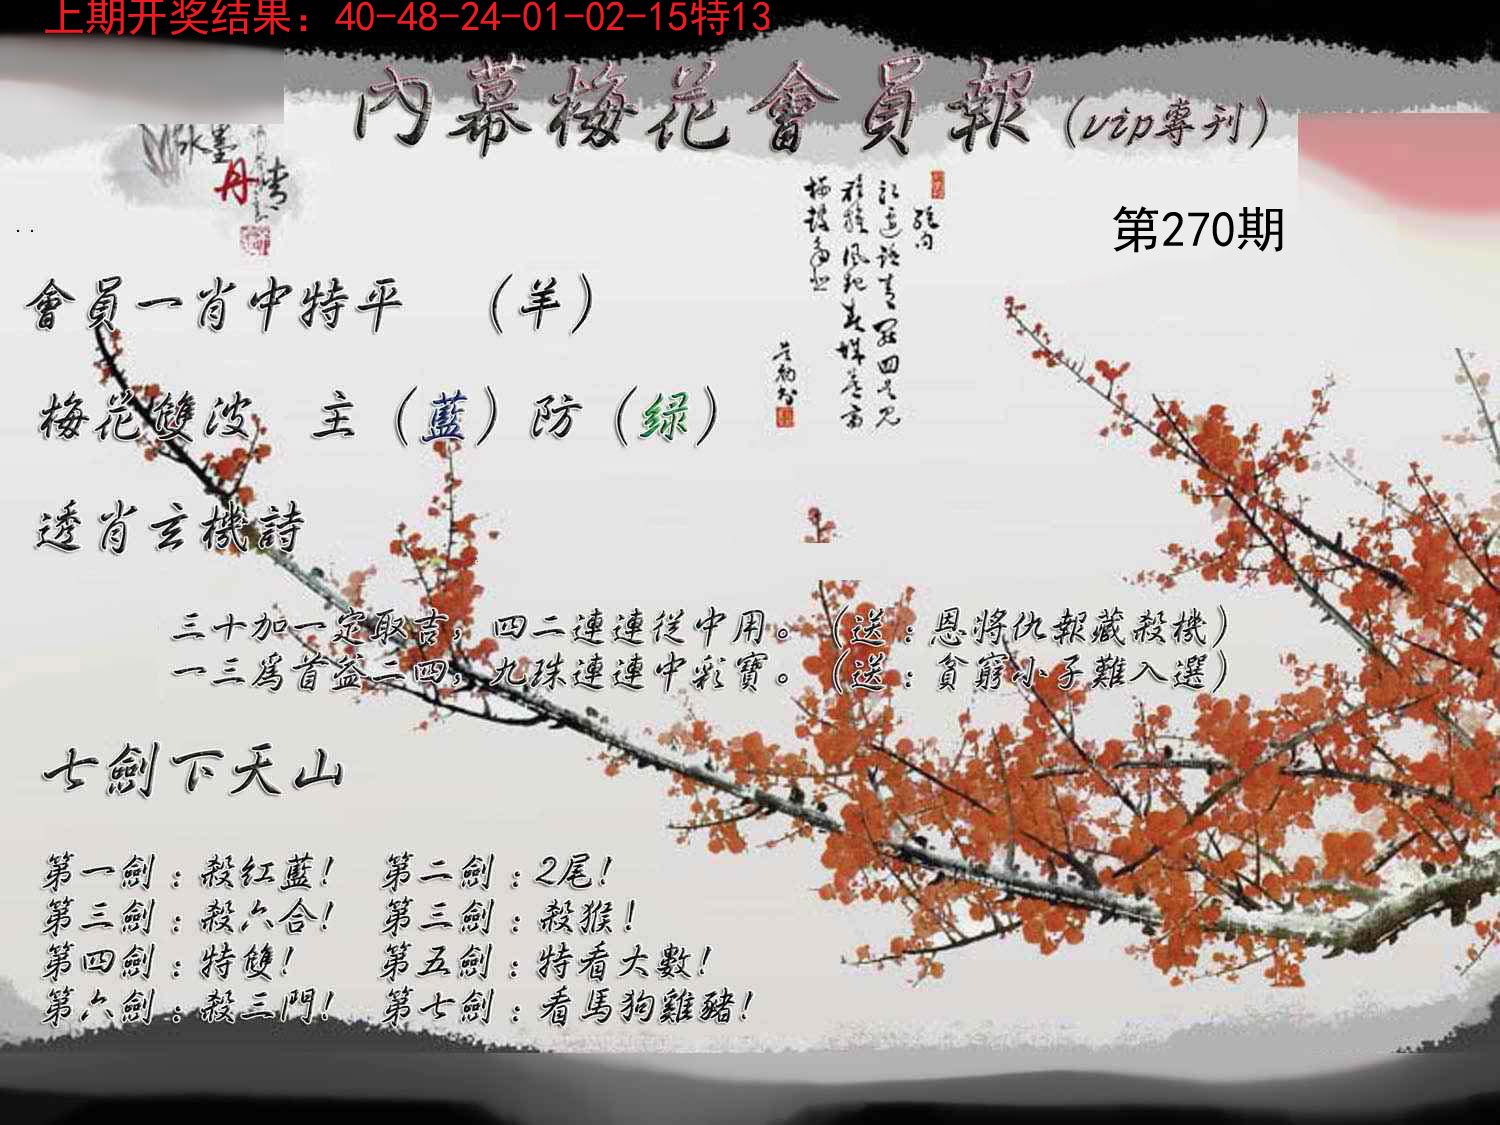 上期开奖结果：40-48-24-01-02-15特13
內幕梅花會員報(vip專刊)
水墨
丹情
第270期
會員一肖中特平 （羊）
梅花雙波 主（藍）防（绿）
透肖玄機詩
三十加一定取吉，四二連連從中用。（送：恩將仇報藏殺機）
一三爲首益二四，九珠連連中彩寶。（送：貧窮小子難入選）
七劍下天山
第一劍：殺紅藍！ 第二劍：2尾！
第三劍：殺六合！ 第三劍：殺猴！
第四劍：特雙！ 第五劍：特看大數！
第六劍：殺三門！ 第七劍：看馬狗雞豬！